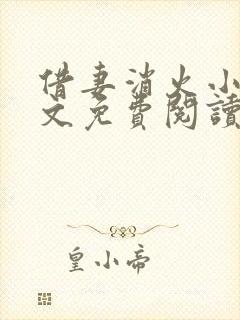 借妻消火小
文免費閱讀
皇小帝